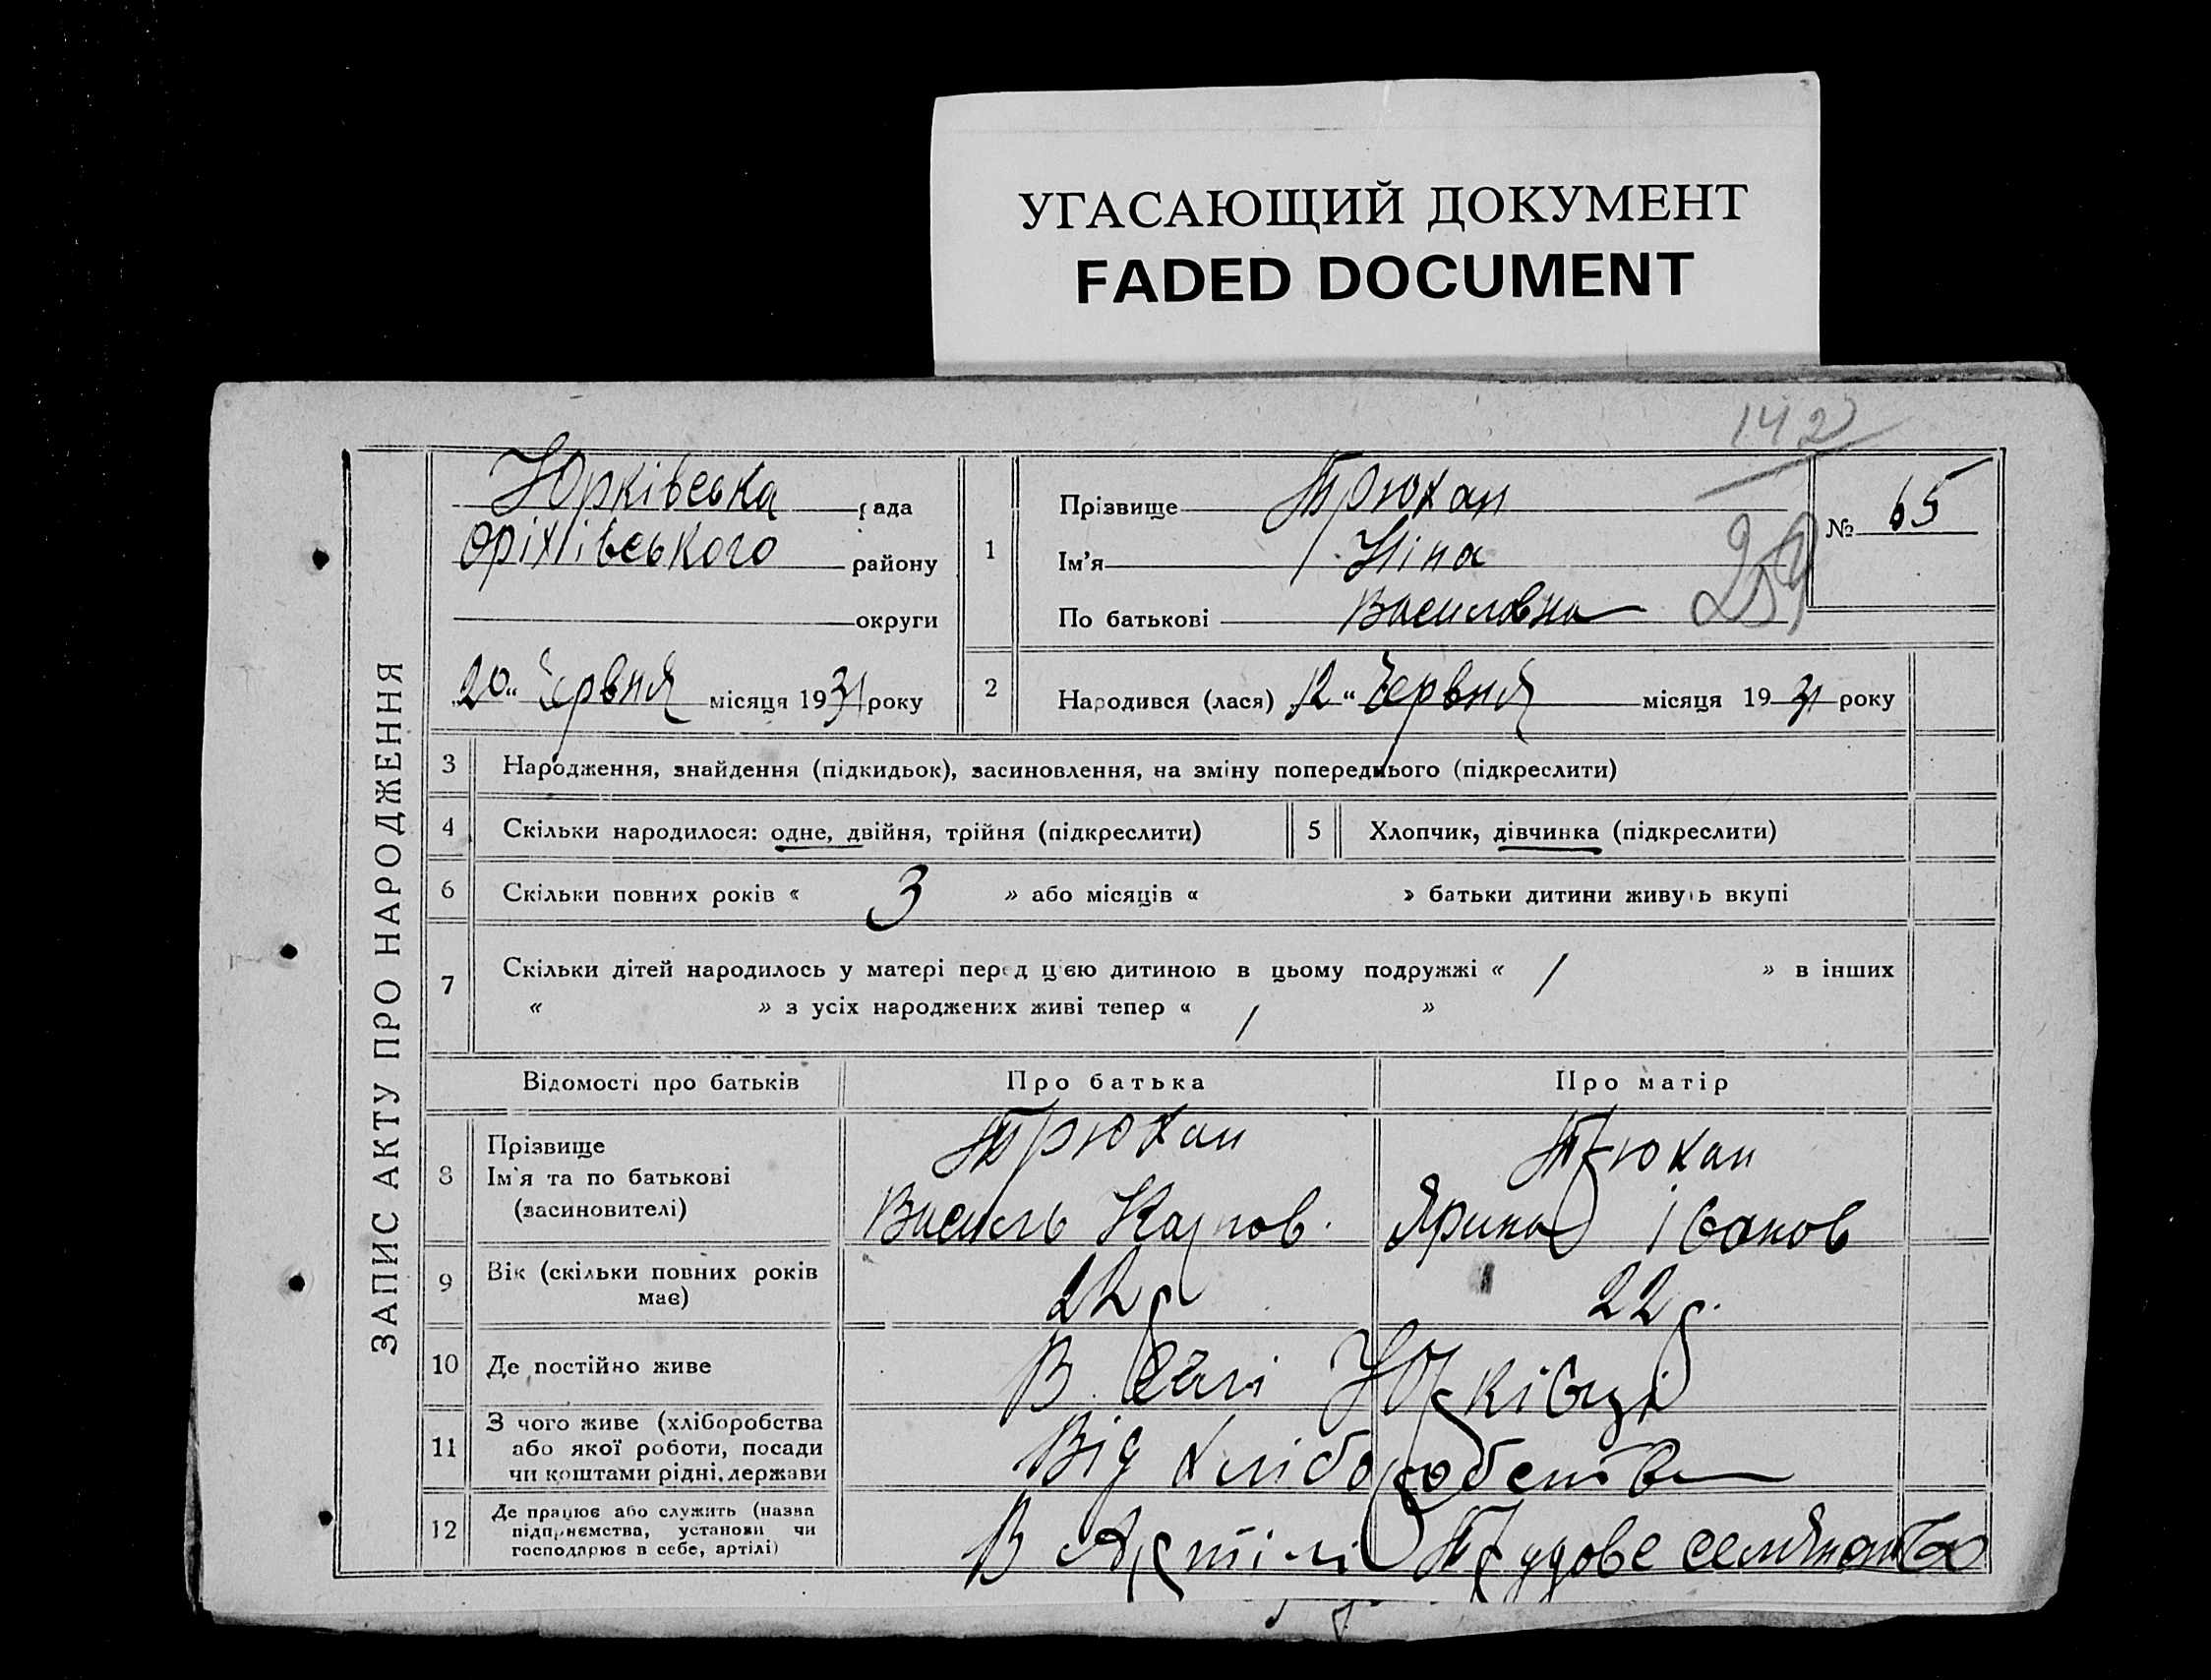 УГАСАЮЩИЙ ДОКУМЕНТ
FADED DOCUMENT
142
ЗАПИС АКТУ ПРО НАРОДЖЕННЯ
Юрківська рада
Оріхівського району
округи
20 " Червня місяця 1931 року
1
Прізвище Трюхан
Ім'я Ніна
По батькові Василовна
№ 65
259
2 Народився (лася) 12 " Червня місяця 1931 року
3 Народження, знайдення (підкидьок), засиновлення, на зміну попереднього (підкреслити)
4 Скільки народилося: одне, двійня, трійня (підкреслити) 5 Хлопчик, дівчинка (підкреслити)
6 Скільки повних років « 3 » або місяців « » батьки дитини живуть вкупі
7 Скільки дітей народилось у матері перед цією дитиною в цьому подружжі « 1 » в інших
« » з усіх народжених живі тепер « 1 »
Відомості про батьків Про батька Про матір
8 Прізвище
Ім'я та по батькові
(засиновителі)
Трюхан
Василь Карпов.
Трюхан
Ярина Іванов
9 Вік (скільки повних років
має)
22 р. 22 р.
10 Де постійно живе В селі Юрківці
11 З чого живе (хліборобства
або якої роботи, посади
чи коштами рідні, держави
Від хліборобства
12 Де працює або служить (назва
підприємства, установи чи
господарює в себе, артілі)
В Артілі Трудове селянство